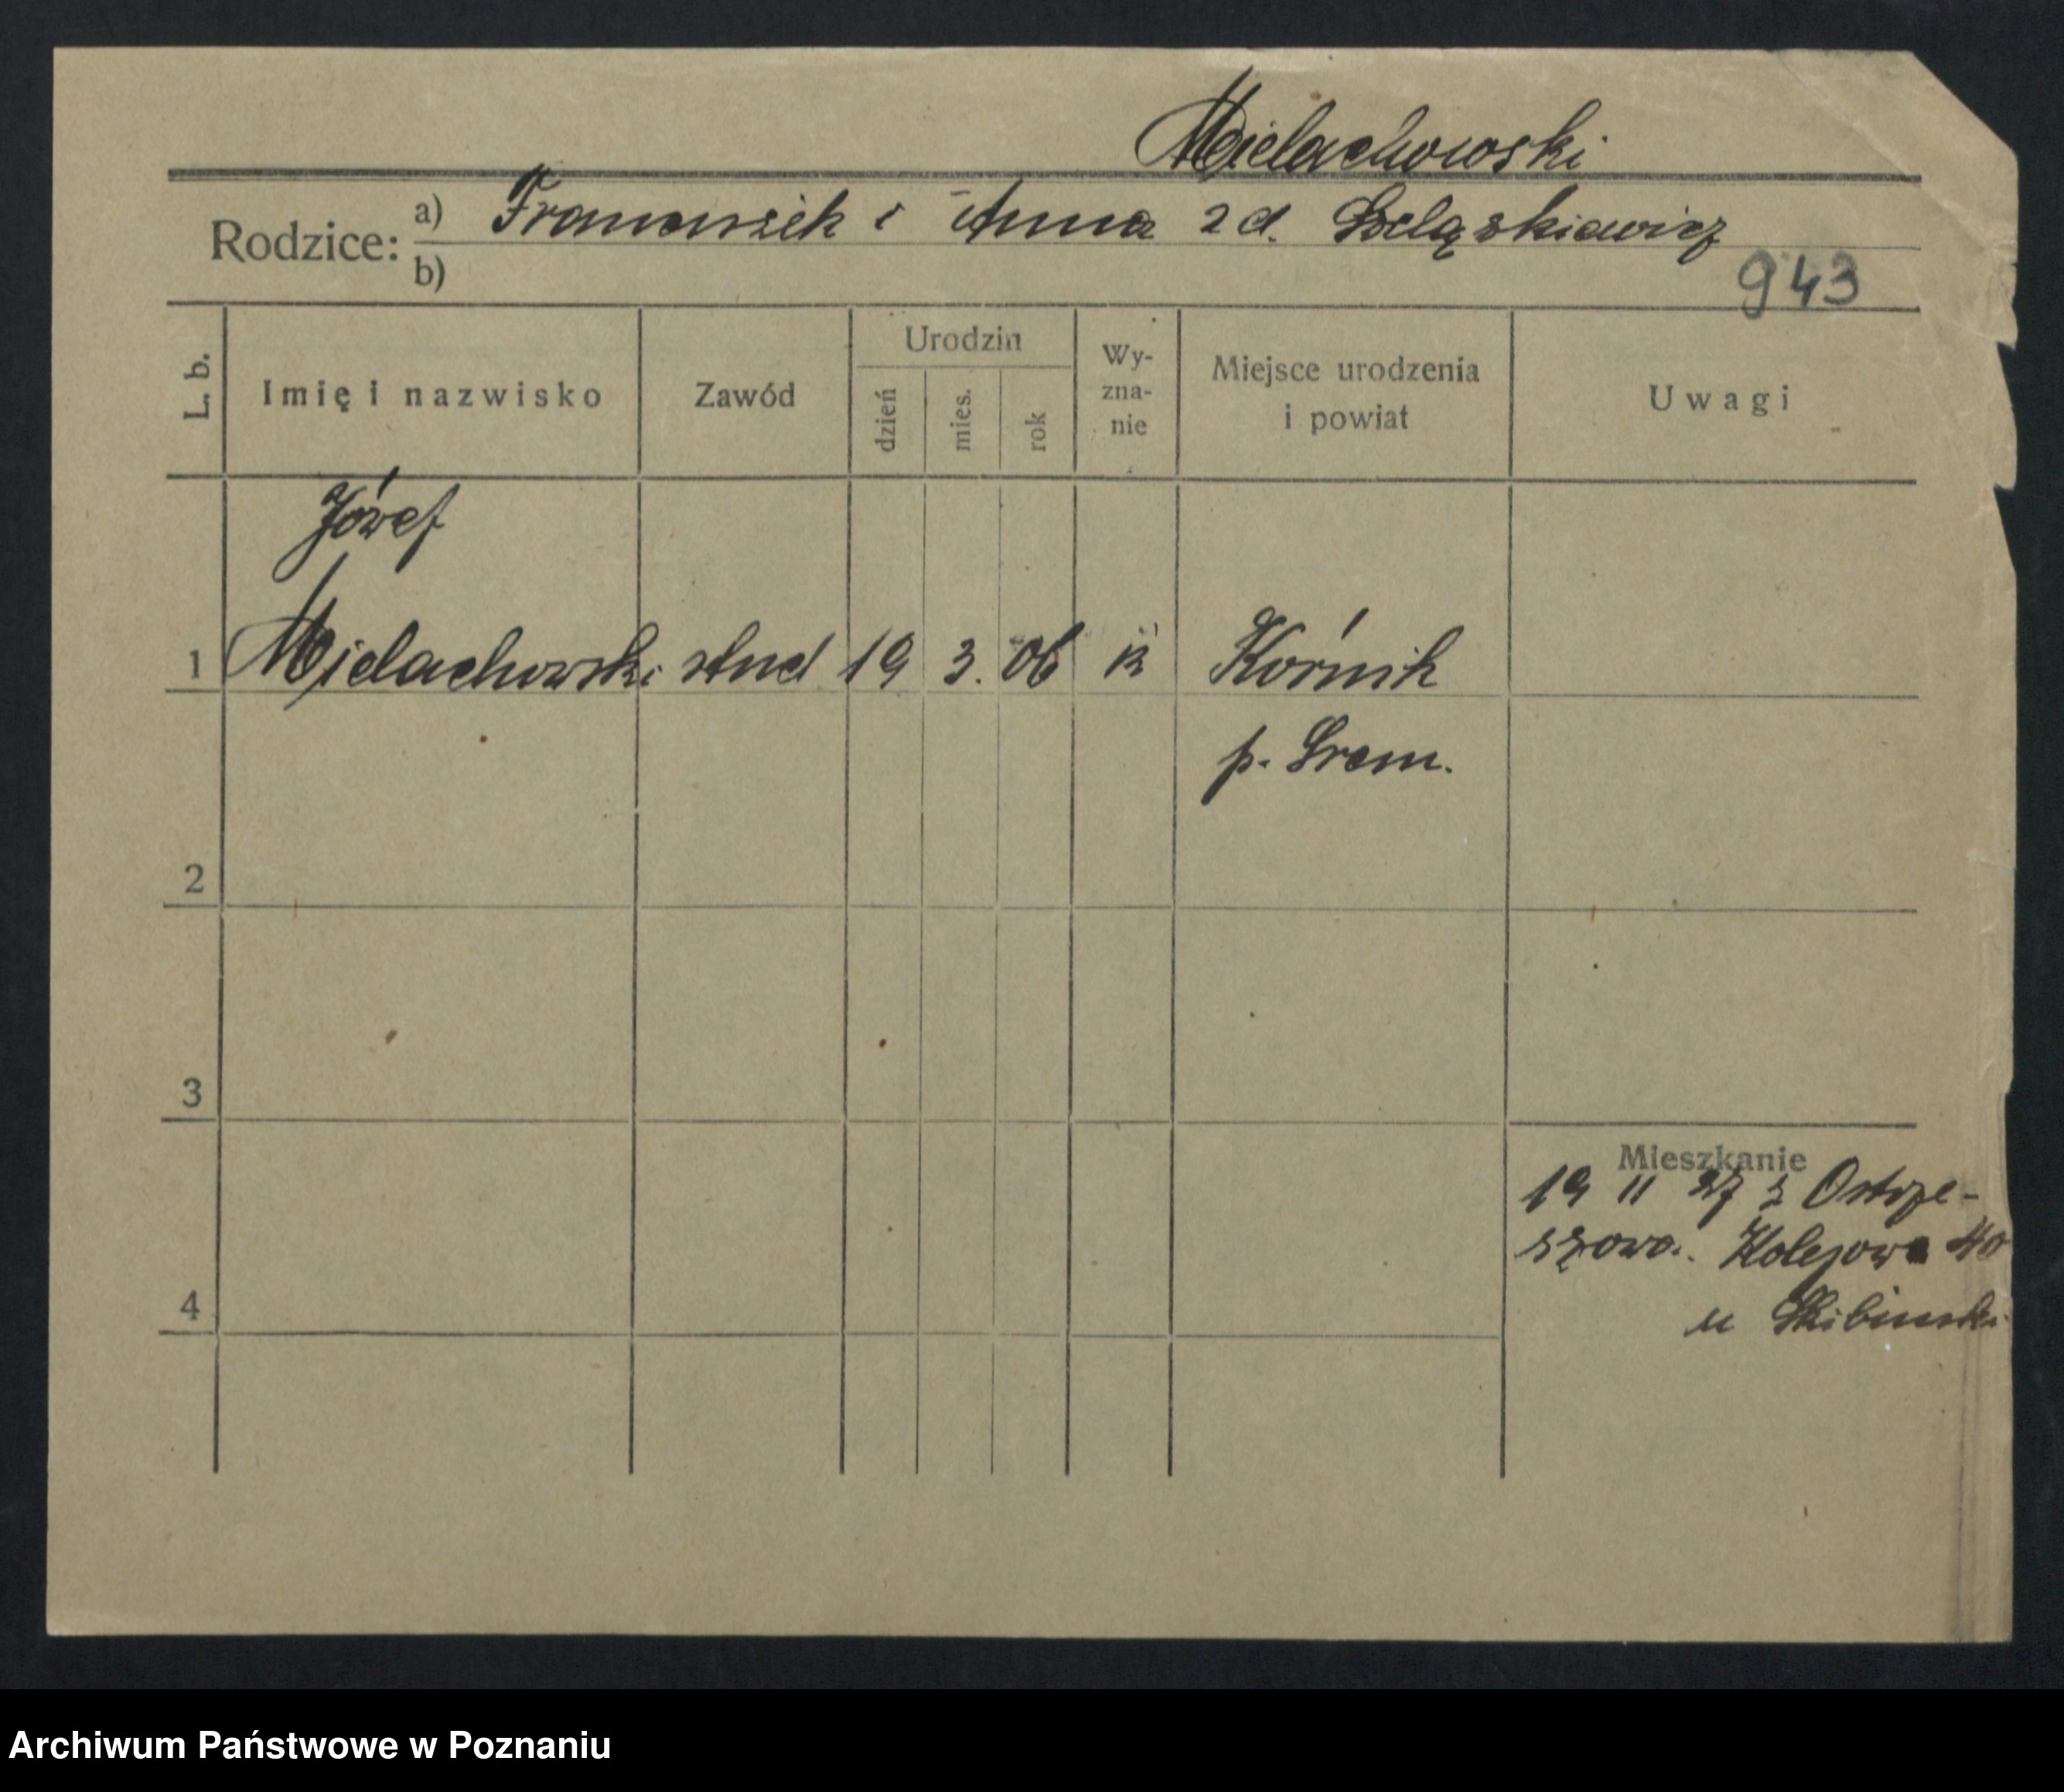 Mielachowski
Rodzice: a) Franciszek i Anna zd. Szelązkiewicz
b)
943
L. b.
Imię i nazwisko
Zawód
Urodzin
dzień
mies.
rok
Wy-
zna-
nie
Miejsce urodzenia
i powiat
Uwagi
Józef
1 Mielachowski stud 19 3. 06 k Kórnik
p. Śrem.
2
3
Mieszkanie
19 11 27 z Ostrze-
szowa. Kolejowa 40
4
u Skibinski
Archiwum Państwowe w Poznaniu